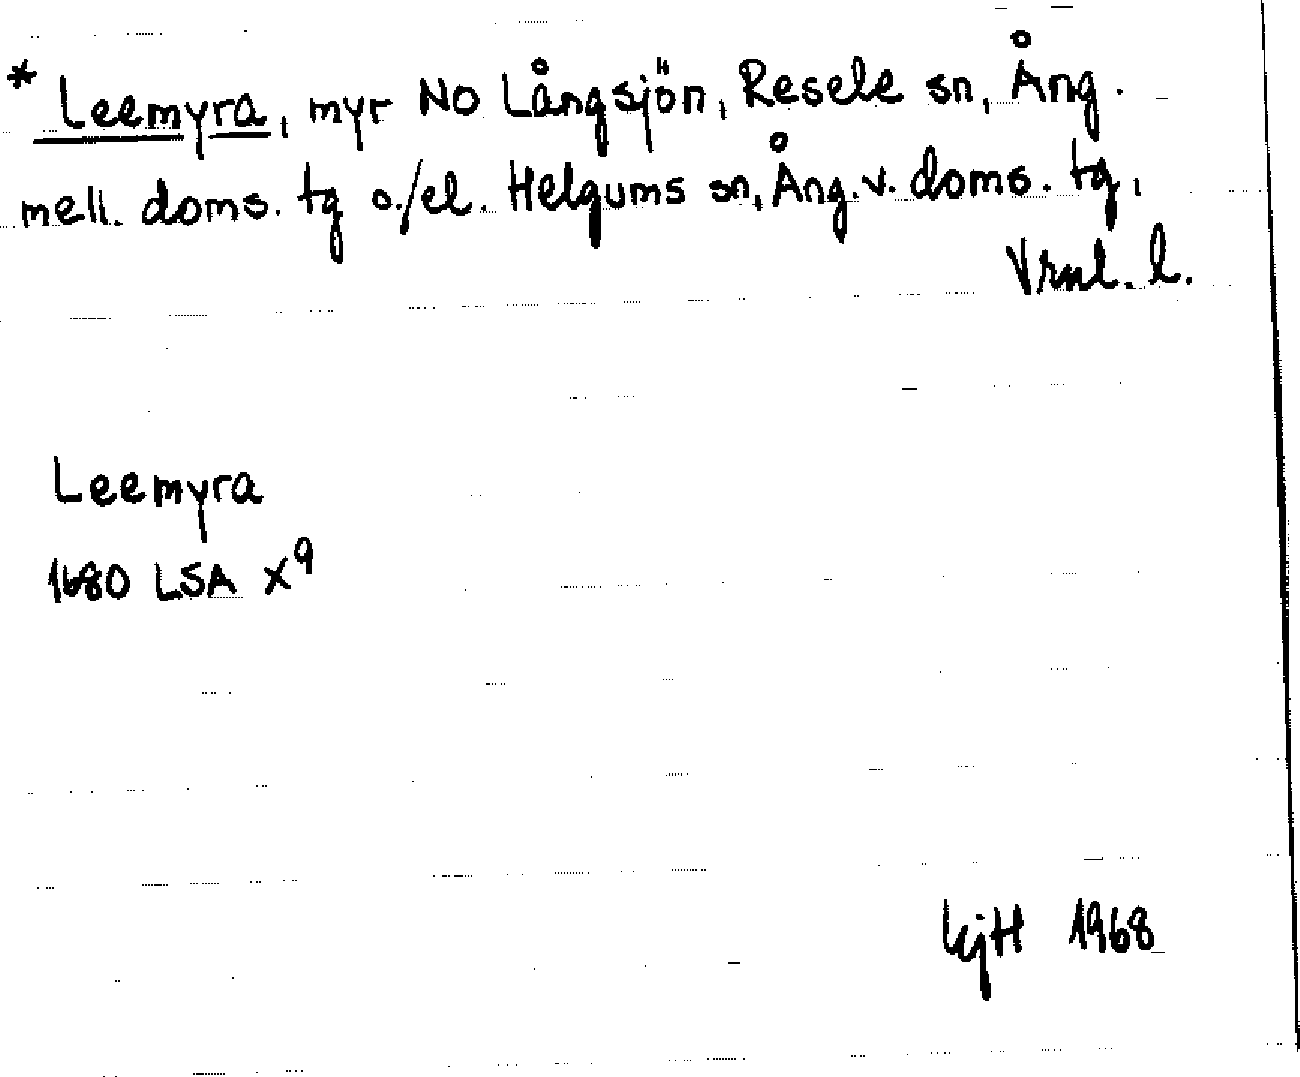 * Leemyra, myr NO Långsjön, Resele sn, Ång.
mell. doms. tg o./el. Helgums sn, Ång. v. doms. tg.
Vrml. l.
Leemyra
1680 LSA X9
1968